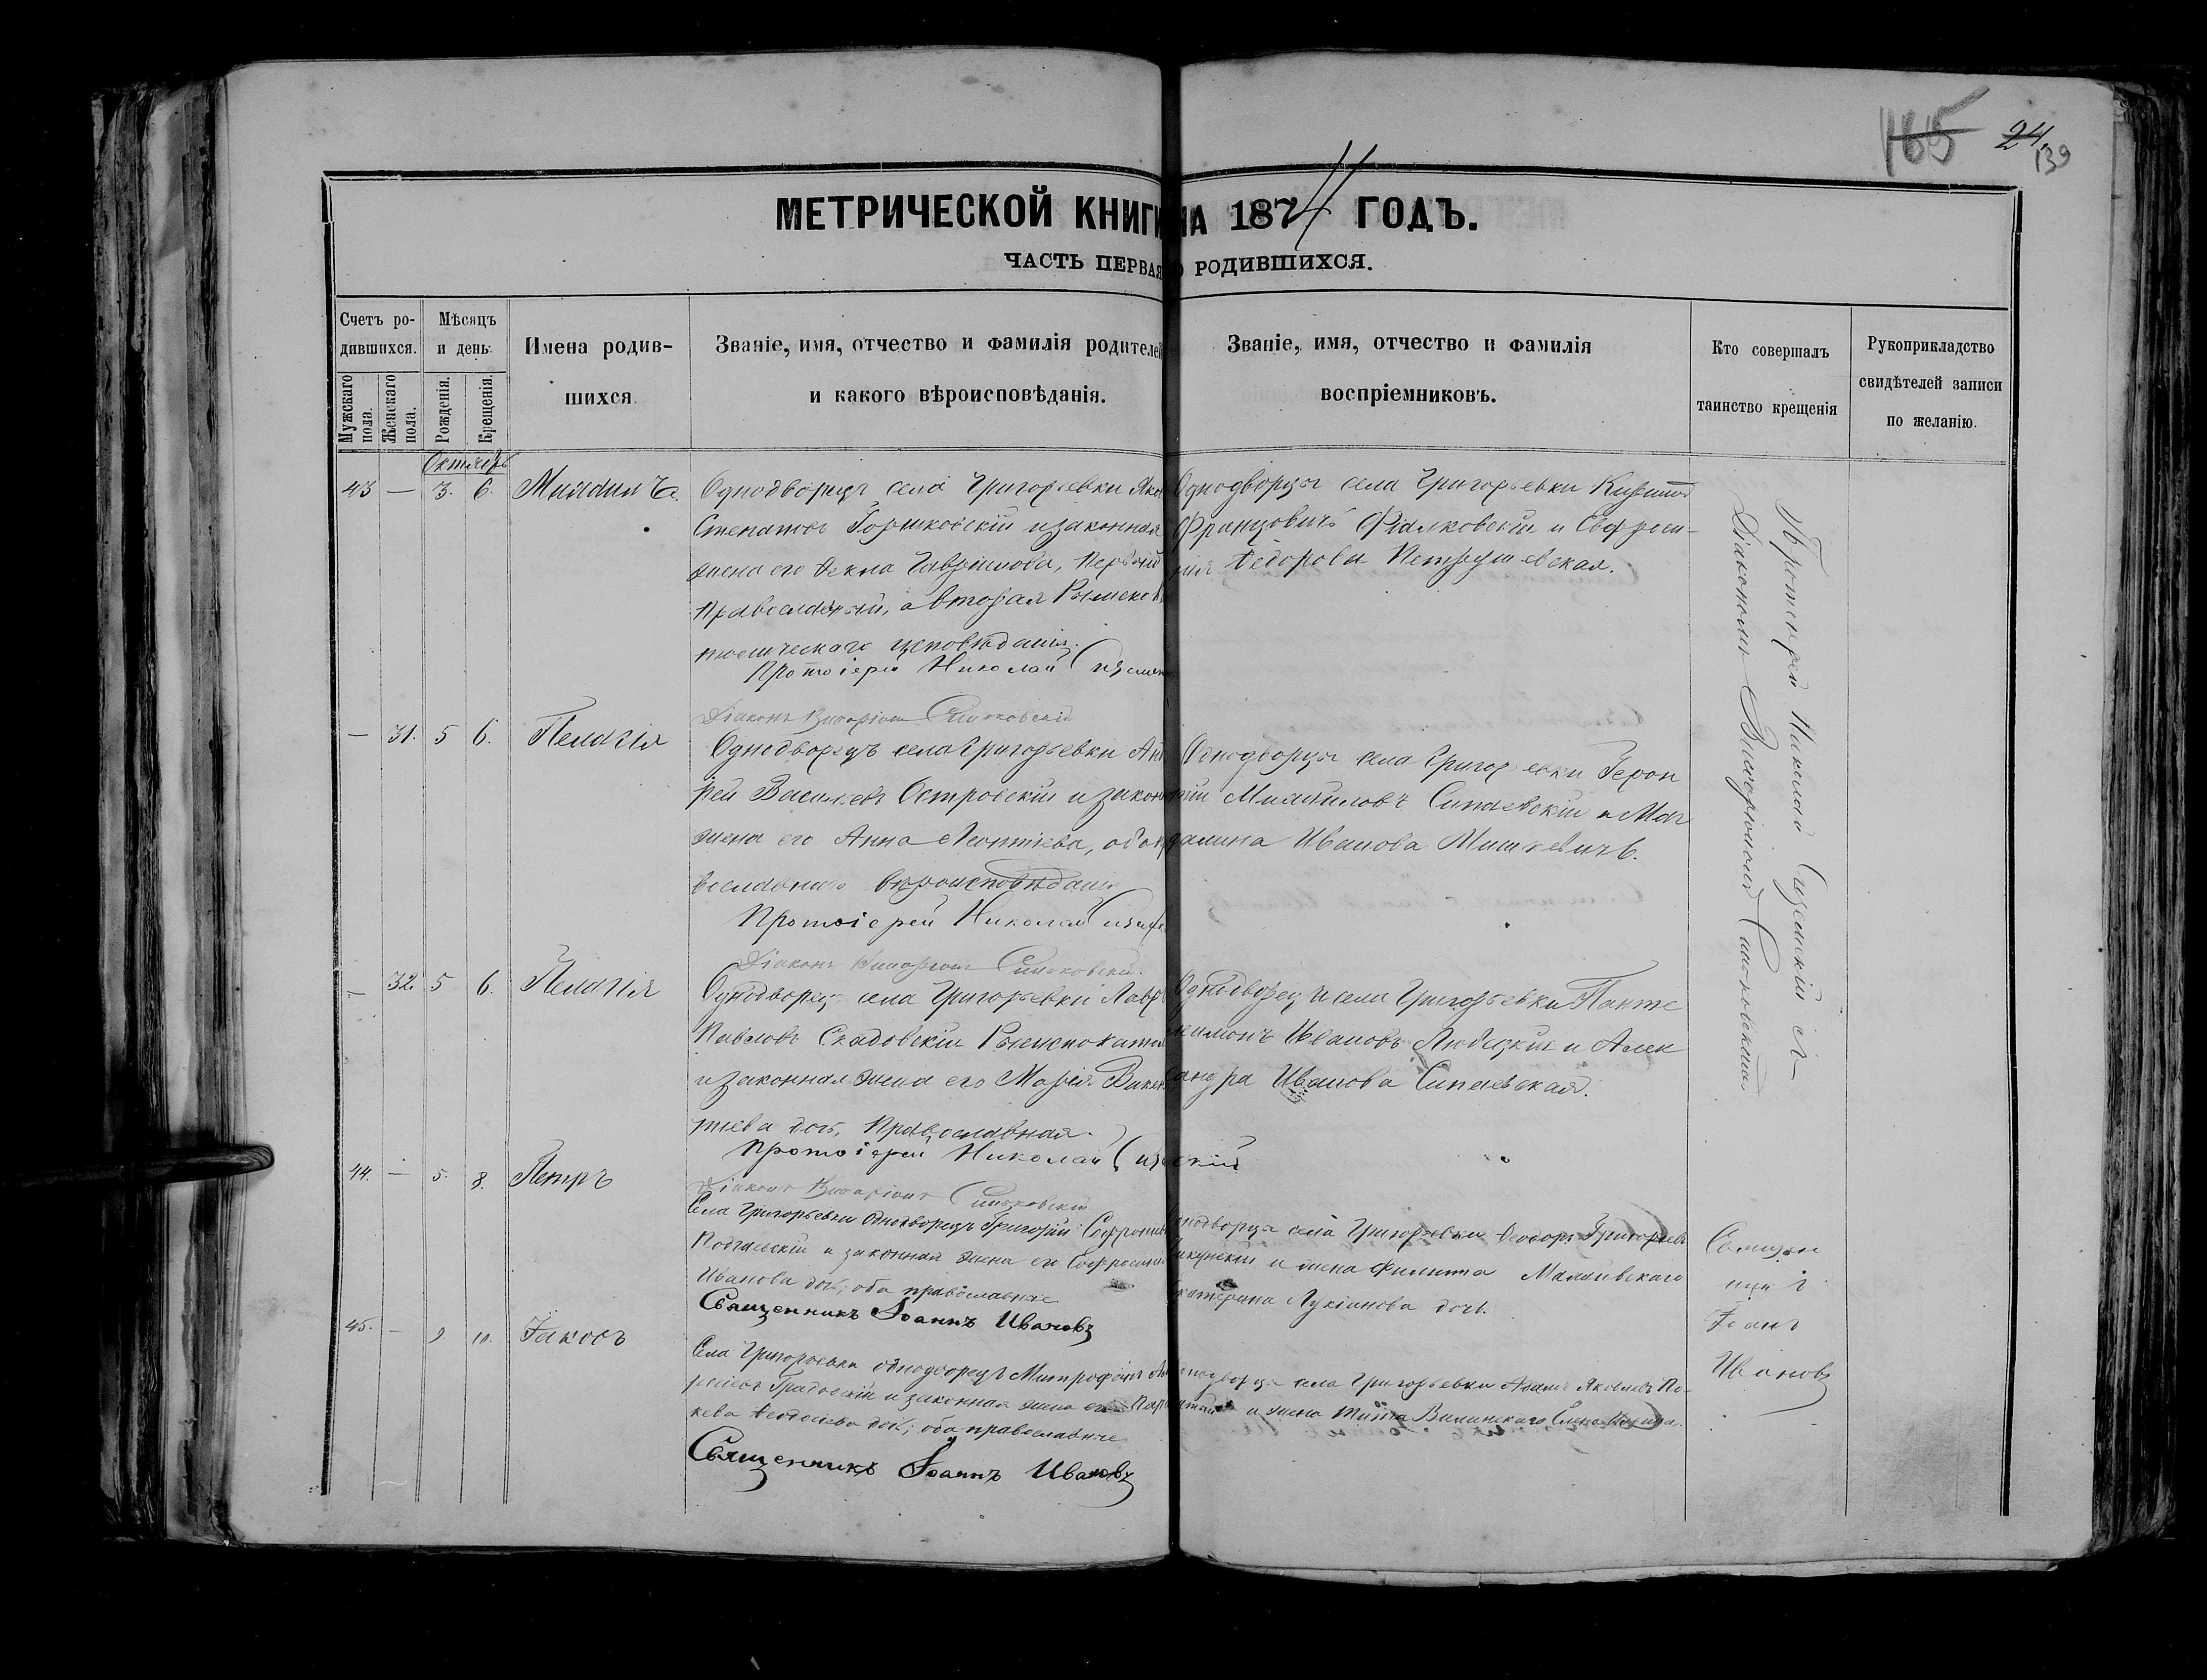 165 24.
139
МЕТРИЧЕСКОЙ КНИГИ НА 1874 ГОДЪ.
ЧАСТЬ ПЕРВАЯ О РОДИВШИХСЯ.
Счетъ ро-
дившихся.
Мужскаго пола.
Женскаго пола.
Мѣсяцъ
и день.
Рожденія.
Крещенія.
Имена родив-
шихся
Званіе, имя, отчество и фамилія родителей
и какого вѣроисповѣданія.
Званіе, имя, отчество и фамилія
воспріемниковъ.
Кто совершалъ
таинство крещенія
Рукоприкладство
свидѣтелей записи
по желанію.
Октябрь
43 — 3. 6. Михаилъ
Однодворецъ села Григорьевки Яко
Степановъ Горшковскій и законная
жена его Ѳекла Гаврилова, первый
православный, а вторая Римско
толическаго исповѣданія.
Протоіерей Николай
Діаконъ
Однодворцы села Григорьевки
Францовичъ Фіалковскій и Евфроси-
нія Ѳедорова Петрушевская.
— 31. 5 6. Пелагія
Однодворецъ села Григорьевки Анд
рей Васильевъ Островскій и законн
жена его Анна Леонтіева, оба пра
вославнаго вѣроисповѣданія
Протоіерей Николай
Діаконъ
Однодворцы села Григорьевки Герон
тій Михайловъ Сипаевскій и Маг
далина Иванова Мишкевичъ.
— 32. 5 6. Пелагія
Однодворецъ села Григорьевки Лавр
Павловъ Скадовскій Римскокатол
и законная жена его Марія Викен
тіева доч, Православная.
Протоіерей Николай
Діаконъ
Однодворецъ села Григорьевки Панте
леимонъ Ивановъ Любецкій и Алек
сандра Иванова Сипаевская.
Протоіерей Николай съ
Діакономъ
44. — 5. 8. Петръ
Села Григорьевки однодворецъ Григорій Софроніев
Подгаевскій и законная жена его Евфросинія
Иванова доч; оба православные
Священникъ Іоаннъ Ивановъ
Однодворцы села Григорьевки Ѳеодоръ Григорьевъ
и жена Филиппа
Екатерина Лукіанова доч.
Священ
никъ
Іоанъ
Ивановъ
45. — 9. 10. Іаковъ
Села Григорьевки однодворецъ Митрофанъ Ан
Градовскій и законная жена его Пара
кева Ѳеодосіева доч; оба православные
Священникъ Іоаннъ Ивановъ
Однодворцы села Григорьевки Адамъ Яковлевъ По-
и жена Вилинскаго Елена